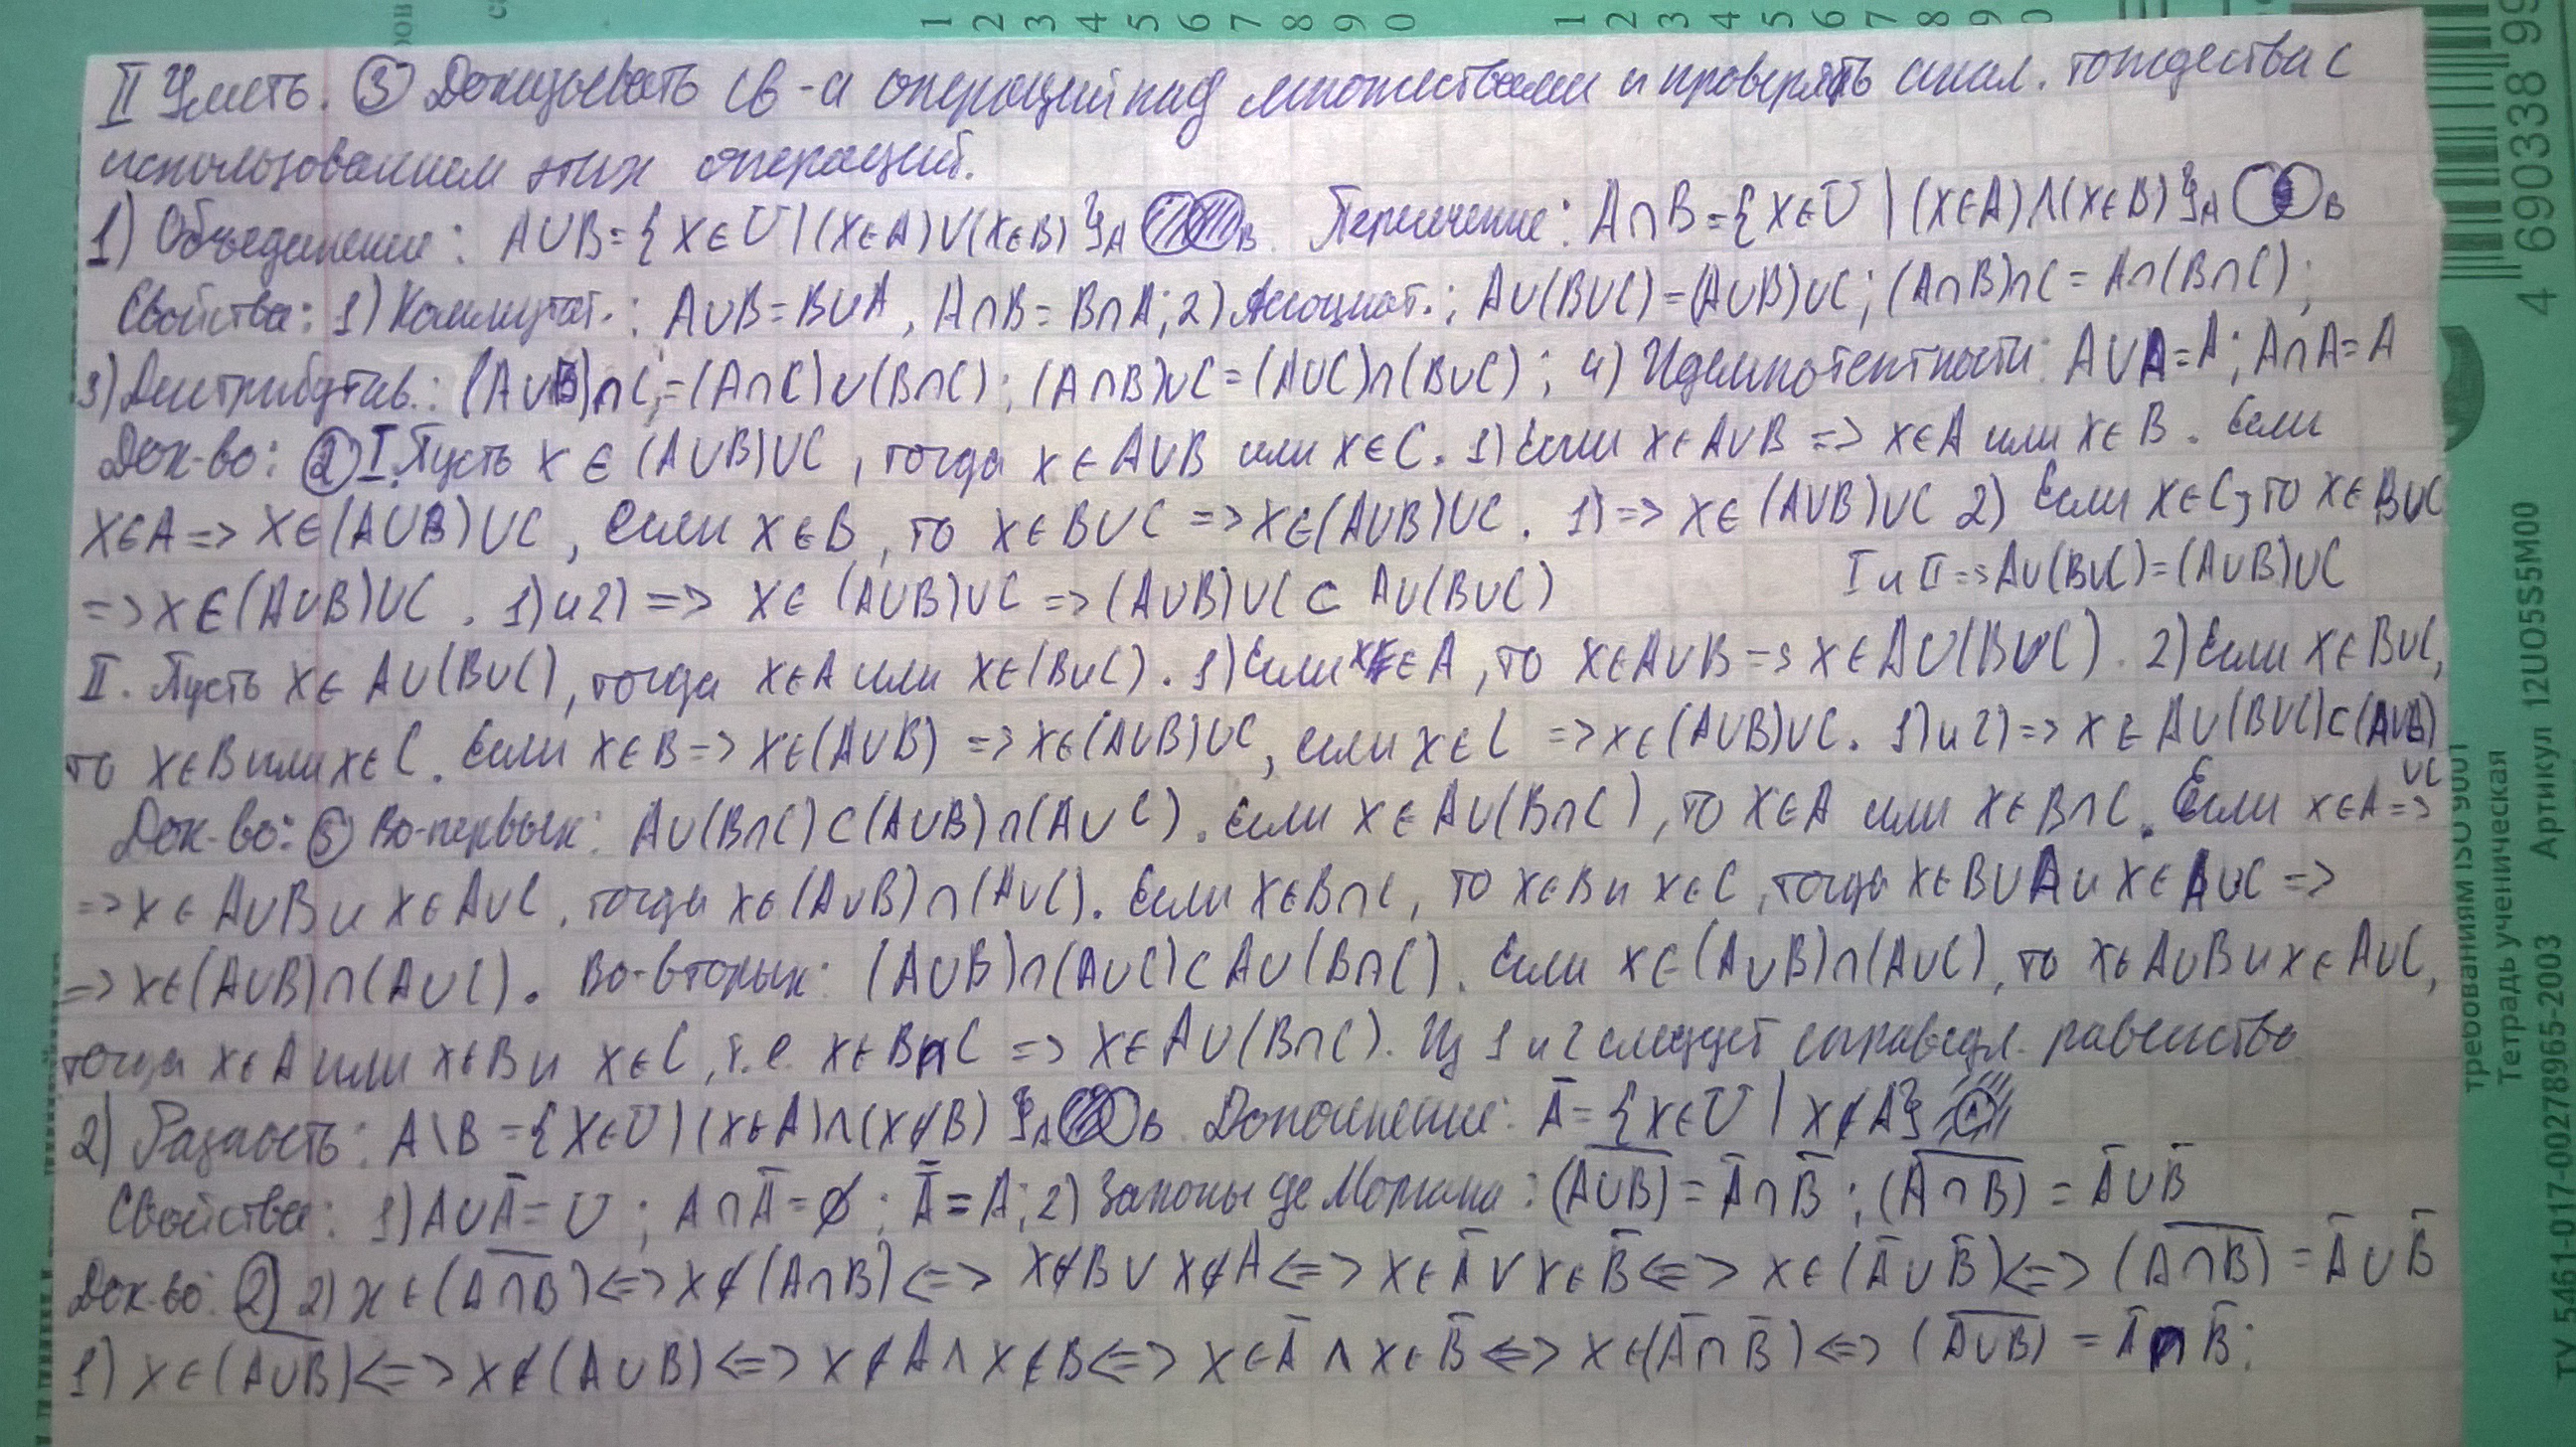 II Уметь. ③ Доказывать св-а операций над множествами и проверять скал. тождества с
использованием этих операций.
1) Объединение: A∪B={x∈U|(x∈A)∨(x∈B)} A B. Пересечение: A∩B={x∈U|(x∈A)∧(x∈B)} A B
Свойства: 1) Коммутат.: A∪B=B∪A, A∩B=B∩A; 2) Ассоциат.: A∪(B∪C)=(A∪B)∪C; (A∩B)∩C=A∩(B∩C);
3) Дистрибутив.: (A∪B)∩C=(A∩C)∪(B∩C); (A∩B)∪C=(A∪C)∩(B∪C); 4) Идемпотентности: A∪A=A; A∩A=A
Док-во: ② I. Пусть x∈(A∪B)∪C, тогда x∈A∪B или x∈C. 1) Если x∈A∪B => x∈A или x∈B. Если
x∈A => x∈(A∪B)∪C, если x∈B, то x∈B∪C => x∈(A∪B)∪C. 1) => x∈(A∪B)∪C 2) Если x∈C, то x∈B∪C
=> x∈(A∪B)∪C. 1) и 2) => x∈(A∪B)∪C => (A∪B)∪C ⊂ A∪(B∪C) I и II => A∪(B∪C)=(A∪B)∪C
II. Пусть x∈A∪(B∪C), тогда x∈A или x∈(B∪C). 1) Если x∈A, то x∈A∪B => x∈A∪(B∪C). 2) Если x∈B∪C,
то x∈B или x∈C. Если x∈B => x∈(A∪B) => x∈(A∪B)∪C, если x∈C => x∈(A∪B)∪C. 1) и 2) => x∈A∪(B∪C)⊂(A∪B)
∪C
Док-во: ⑤ Во-первых: A∪(B∩C)⊂(A∪B)∩(A∪C). Если x∈A∪(B∩C), то x∈A или x∈B∩C. Если x∈A =>
=> x∈A∪B и x∈A∪C, тогда x∈(A∪B)∩(A∪C). Если x∈B∩C, то x∈B и x∈C, тогда x∈B∪A и x∈A∪C =>
=> x∈(A∪B)∩(A∪C). Во-вторых: (A∪B)∩(A∪C)⊂A∪(B∩C). Если x∈(A∪B)∩(A∪C), то x∈A∪B и x∈A∪C,
тогда x∈A или x∈B и x∈C, т.е. x∈B∩C => x∈A∪(B∩C). Из 1 и 2 следует справедл. равенство
2) Разность: A\B={x∈U|(x∈A)∧(x∉B)} A B. Дополнение: Ā={x∈U|x∉A} A
Свойства: 1) A∪Ā=U; A∩Ā=∅; A̿=A; 2) Законы де Моргана: (A̅∪̅B̅)=Ā∩B̄; (A̅∩̅B̅)=Ā∪B̄
Док-во: ② 2) x∈(A̅∩̅B̅)<=>x∉(A∩B)<=>x∉B∨x∉A<=>x∈Ā∨x∈B̄<=>x∈(Ā∪B̄)<=>(A̅∩̅B̅)=Ā∪B̄
1) x∈(A̅∪̅B̅)<=>x∉(A∪B)<=>x∉A∧x∉B<=>x∈Ā∧x∈B̄<=>x∈(Ā∩B̄)<=>(A̅∪̅B̅)=Ā∩B̄;
1 2 3 4 5 6 7 8 9 0 1 2 3 4 5 6 7 8 9 0
4 690338 99
требованиям ISO 9001
Тетрадь ученическая
Артикул 12UO5S5M00
ТУ 5461-017-00278965-2003